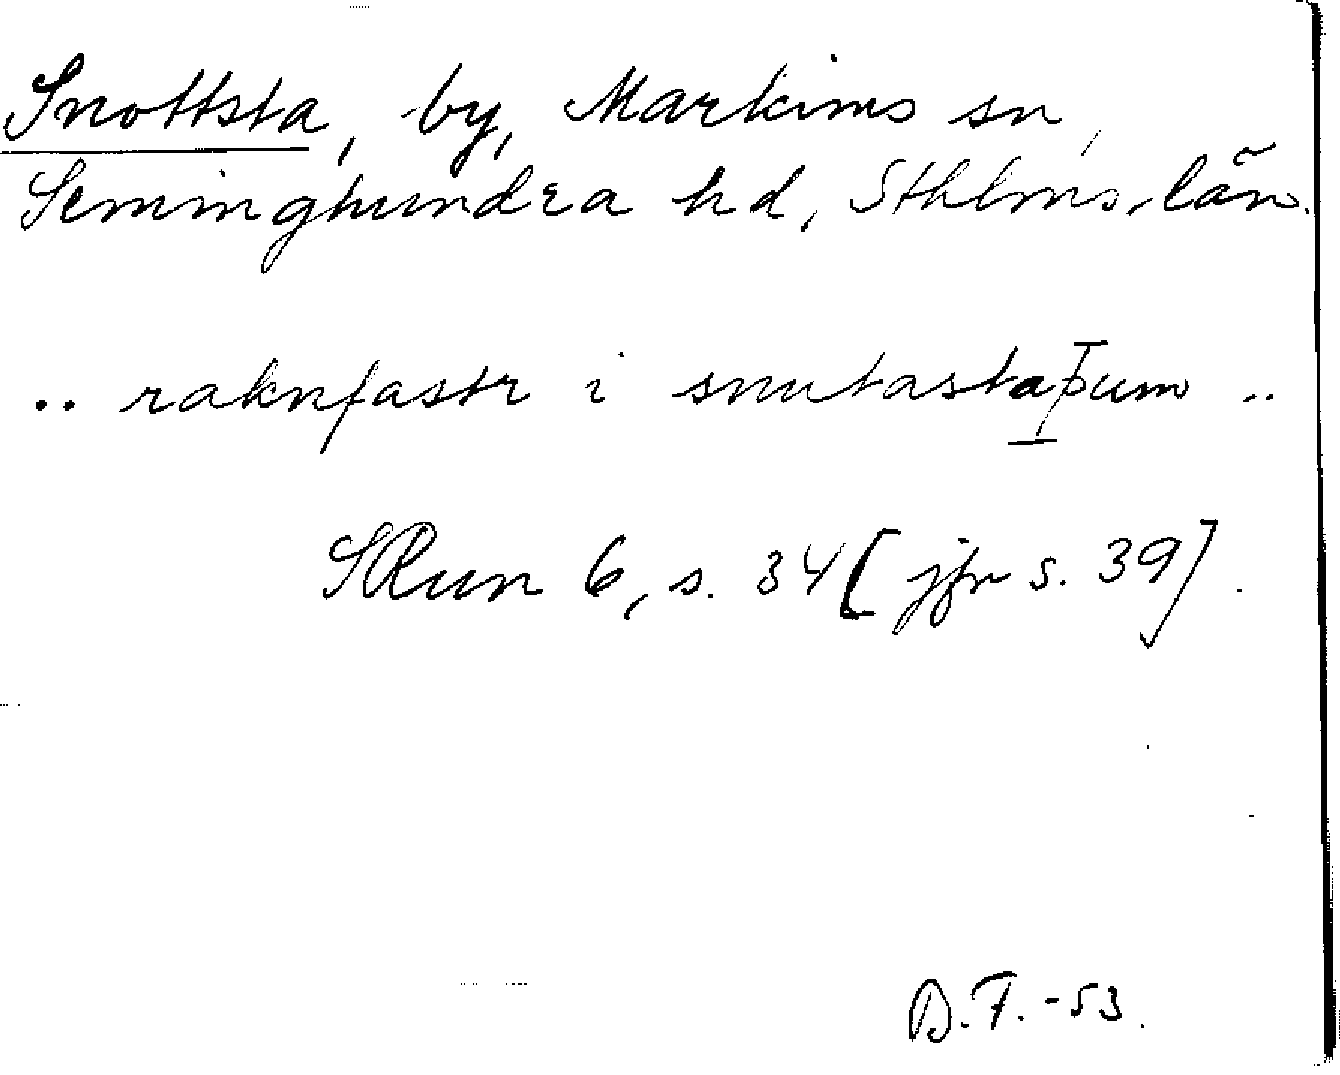 Snottsta, by, Markims sn,
Seminghundra hd, Sthlms län.
.. raknfastr i snutastaþum ..
SRun 6, s. 34 [jfr s. 39].
D.F.-53.